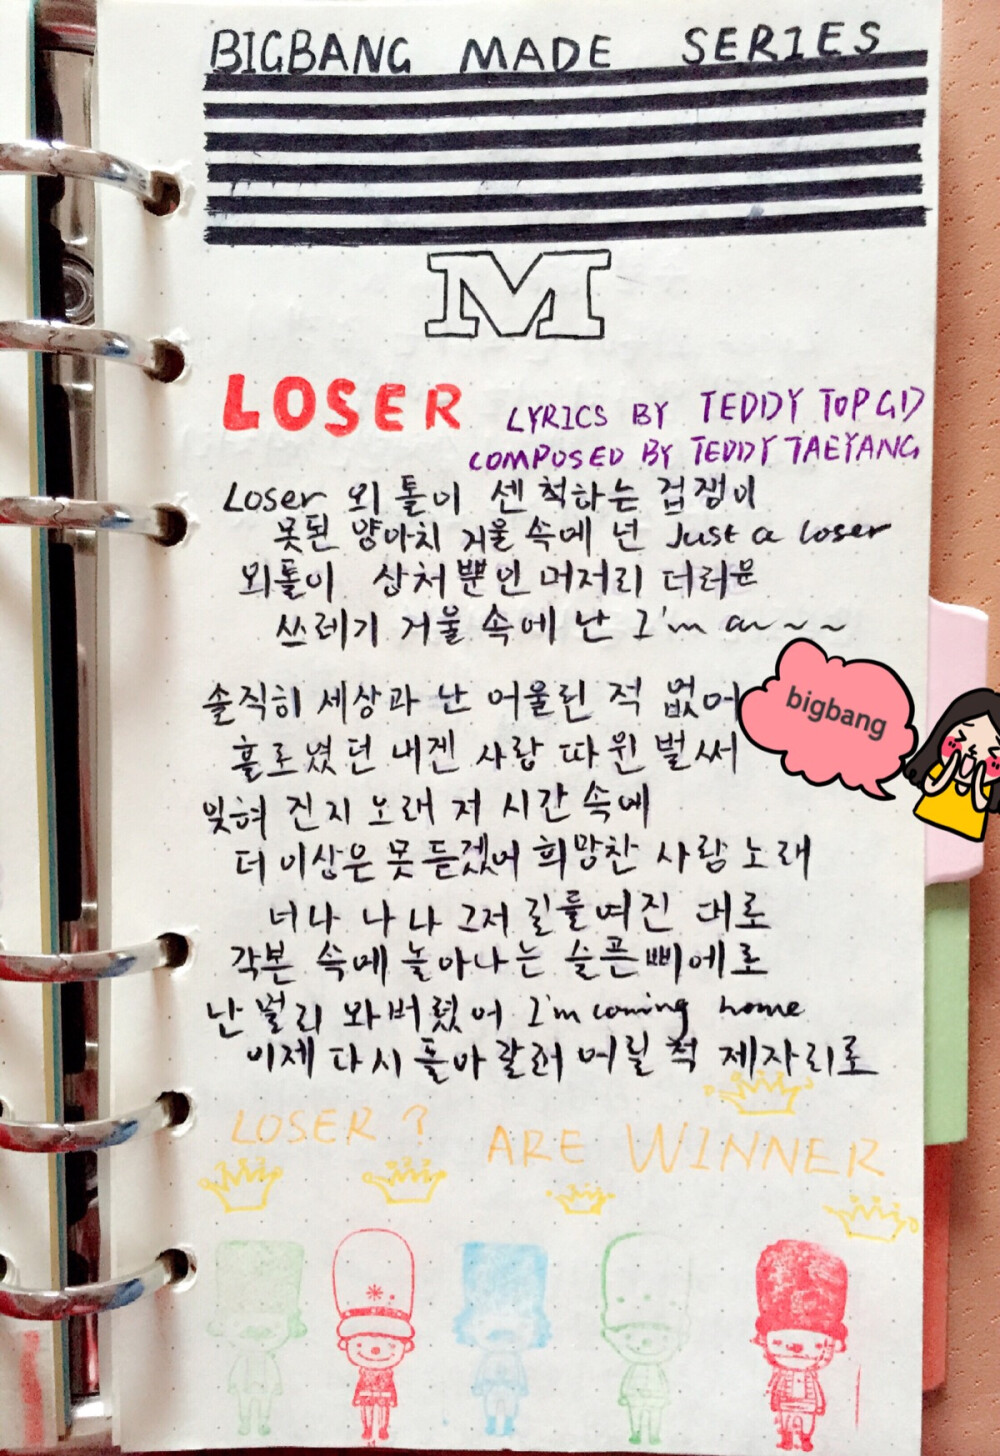 BIGBANG MADE SERIES
M
LOSER LYRICS BY TEDDY TOP GD
COMPOSED BY TEDDY TAEYANG
Loser 외톨이 센 척하는 겁쟁이
못된 양아치 거울 속에 넌 Just a loser
외톨이 상처뿐인 머저리 더러운
쓰레기 거울 속에 난 I'm a~~~
솔직히 세상과 난 어울린 적 없어
홀로였던 내겐 사랑 따윈 벌써
잊혀 진지 노래 저 시간 속에
더 이상은 못 듣겠어 희망찬 사랑 노래
너나 나나 그저 길들여진 대로
각본 속에 놀아나는 슬픈 삐에로
난 멀리 와버렸어 I'm coming home
이제 다시 돌아갈래 어릴 적 제자리로
LOSER ? ARE WINNER
bigbang